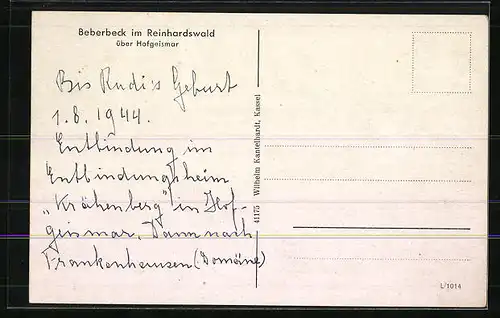 Beberbeck im Reinhardswald
über Hofgeismar
Bis Rudi's Geburt
1.8.1944.
Entbindung im
Entbindungsheim
„Krähenberg" in Hof-
geismar. Dann nach
Frankenhausen (Domäne)
41175 Wilhelm Kantelhardt, Kassel
L/1014